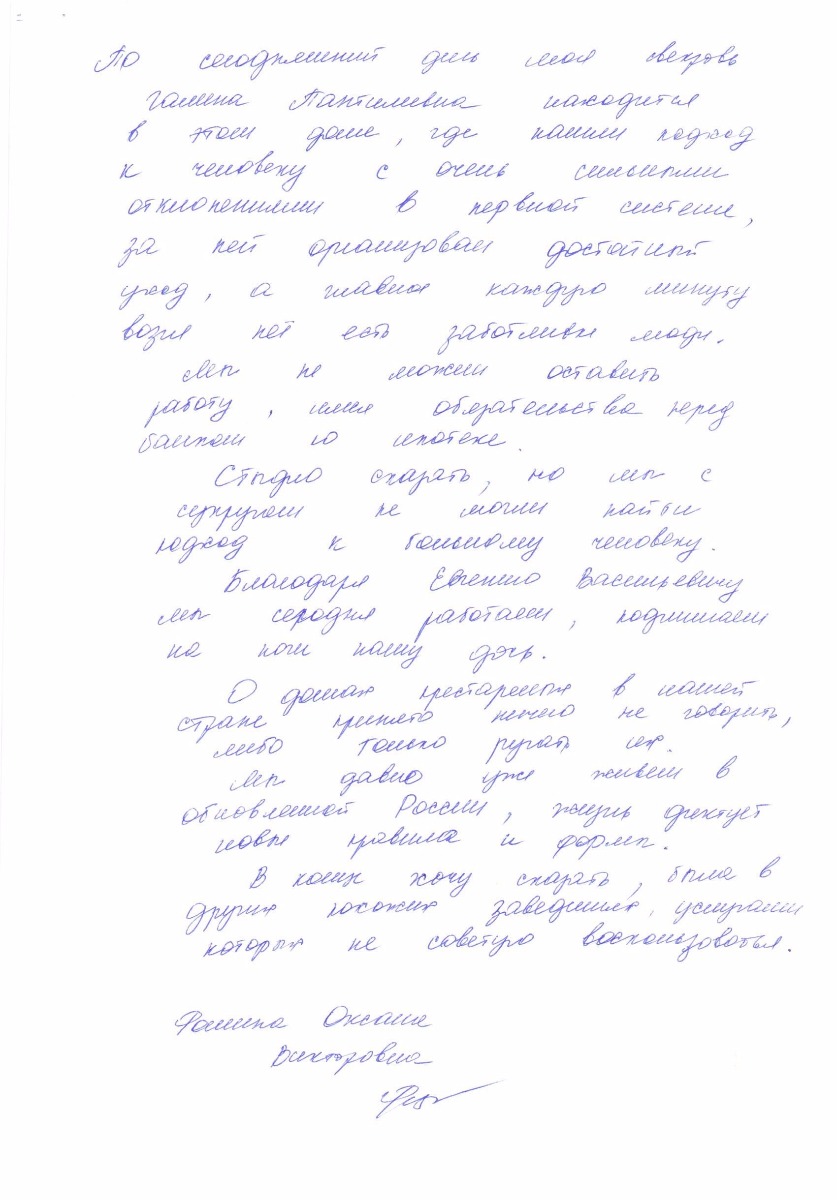 По сегодняшний день моя свекровь
Галина Пантилевна находится
в этом доме, где нашли подход
к человеку с очень сильными
отклонениями в нервной системе,
за ней организован достойный
уход, а главное каждую минуту
возле неё есть заботливые люди.
Мы не можем оставить
работу, имея обязательства перед
банком по ипотеке.
Стыдно сказать, но мы с
супругом не могли найти
подход к больному человеку.
Благодаря Евгению Васильевичу
мы сегодня работаем, поднимаем
на ноги нашу дочь.
О домах престарелых в нашей
стране принято ничего не говорить,
либо только ругать их.
Мы давно уже живем в
обновленной России, жизнь диктует
новые правила и формы.
В конце хочу сказать, была в
других похожих заведениях, услугами
которых не советую воспользоваться.
Фомина Оксана
Викторовна